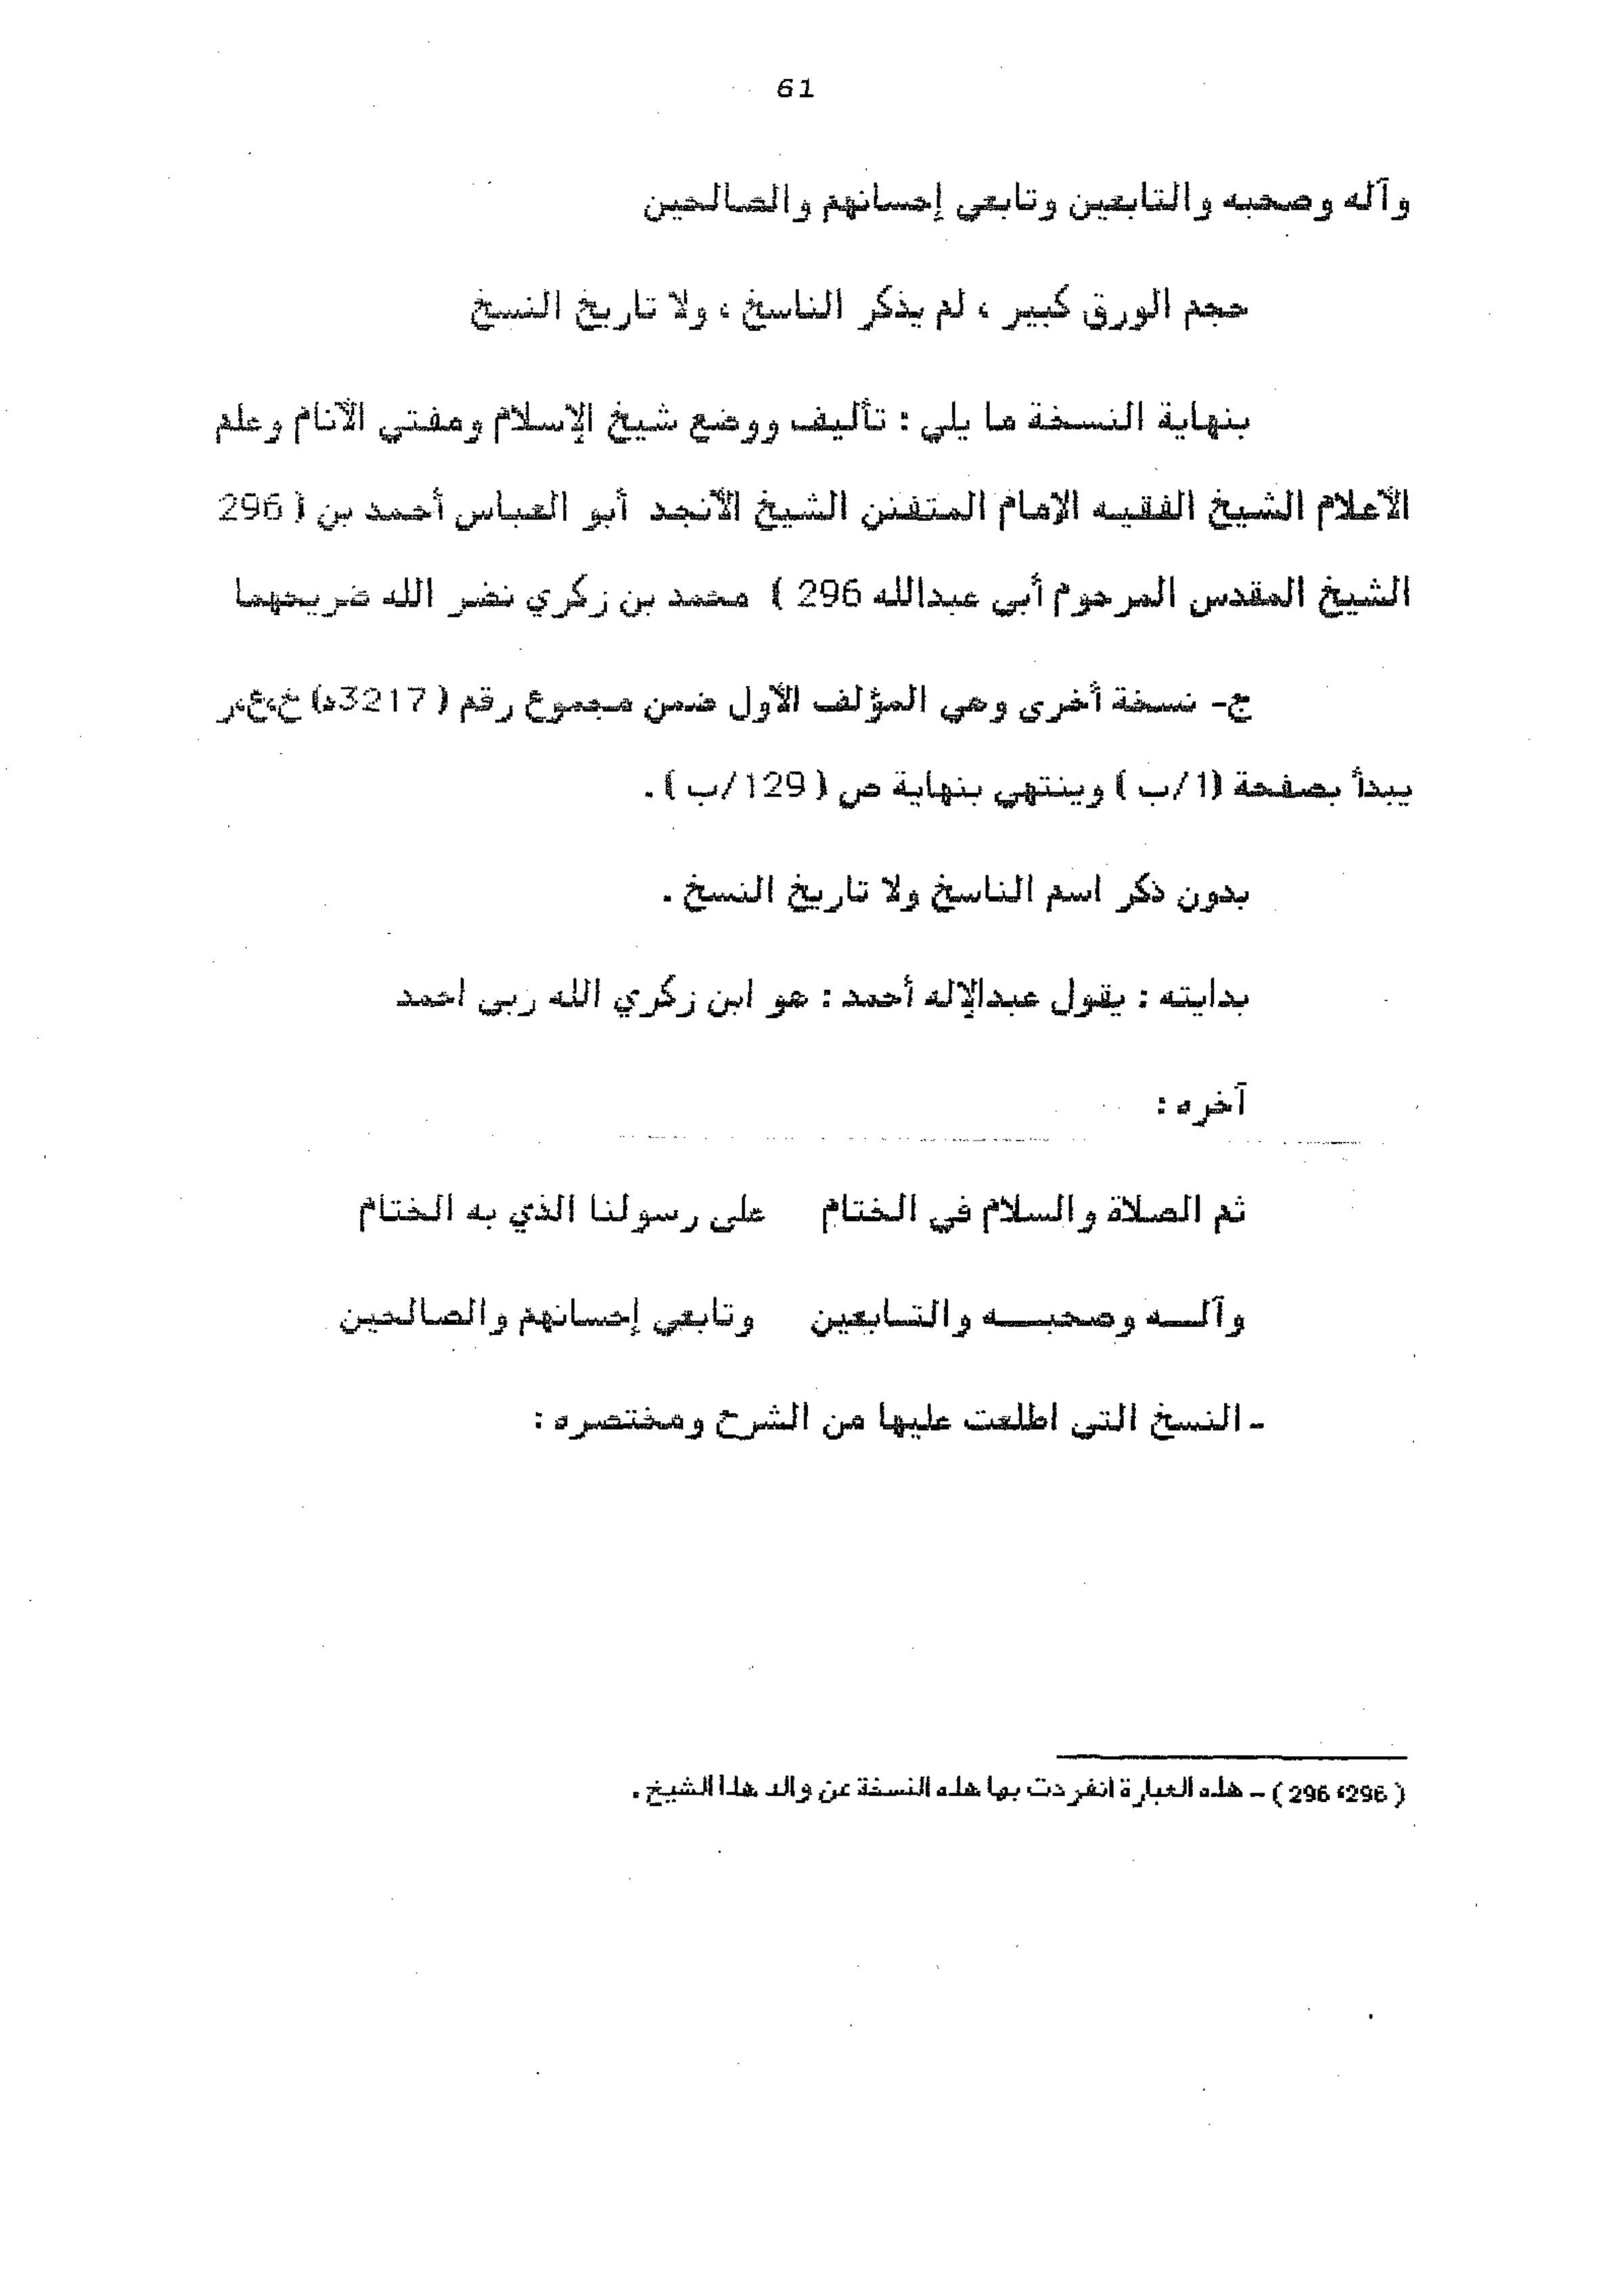 61
وآله وصحبه والتابعين وتابعى إحسانهم والصالحين
حجم الورق كبير ، لم يذكر الناسخ ، ولا تاريخ النسخ
بنهاية النسخة ما يلي : تأليف ووضع شيخ الإسلام ومفتي الأنام وعلم
الأعلام الشيخ الفقيه الإمام المتفنن الشيخ الأنجد أبو العباس أحمد بن ( 296
الشيخ المقدس المرحوم أبي عبدالله 296 ) محمد بن زكري نضر الله ضريحهما
ج- نسخة أخرى وهي المؤلف الأول ضمن مجموع رقم ( 3217د) خ،ع،ر
يبدأ بصفحة (1/ب ) وينتهي بنهاية ص ( 129/ب ) .
بدون ذكر اسم الناسخ ولا تاريخ النسخ .
بدايته : يقول عبدالإله أحمد : هو ابن زكري الله ربى احمد
آخره :
ثم الصلاة والسلام في الختام على رسولنا الذي به الختام
وآلـــه وصحبـــه والتــابعين وتابعى إحسانهم والصالحين
- النسخ التى اطلعت عليها من الشرح ومختصره :
( 296، 296 ) - هذه العبارة انفردت بها هذه النسخة عن والد هذا الشيخ .